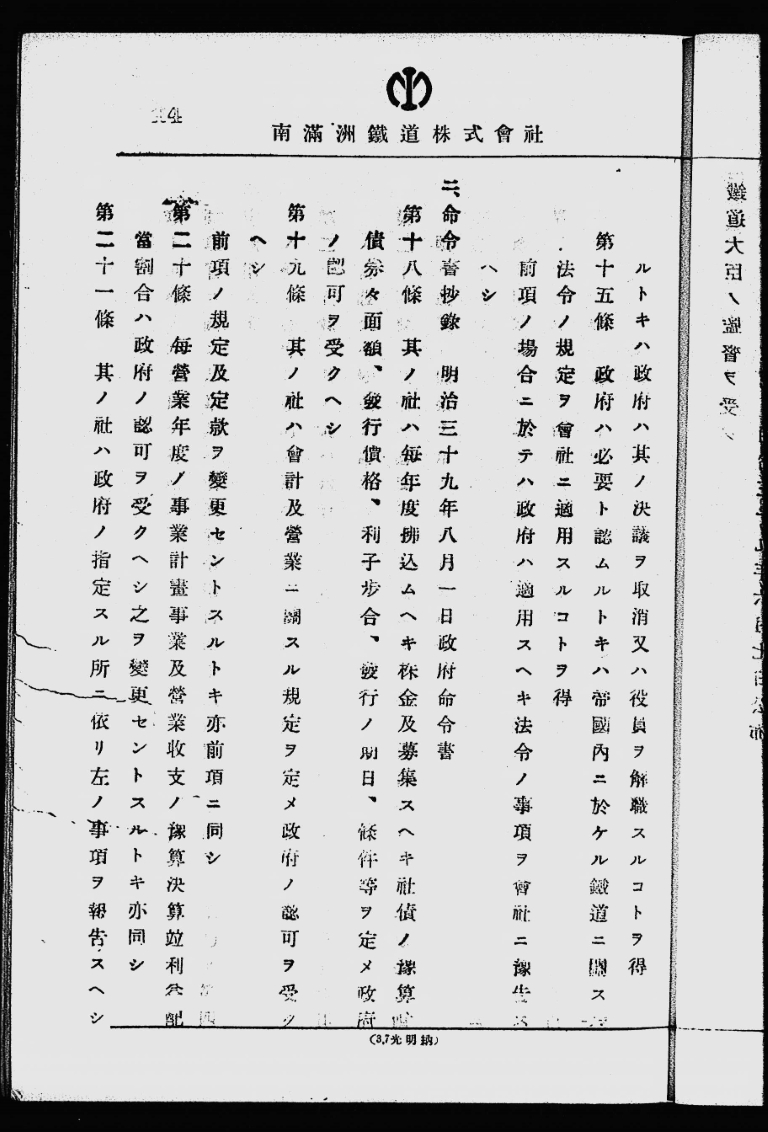 南滿洲鐵道株式會社
ルトキハ政府ハ其ノ決議ヲ取消又ハ役員ヲ解職スルコトヲ得
第十五條 政府ハ必要ト認ムルトキハ帝國內ニ於ケル鐵道ニ關ス
法令ノ規定ヲ會社ニ適用スルコトヲ得
前項ノ場合ニ於テハ政府ハ適用スヘキ法令ノ事項ヲ會社ニ豫告ス
ヘシ
二、命令書抄錄 明治三十九年八月一日政府命令書
第十八條 其ノ社ハ每年度拂込ムヘキ株金及募集スヘキ社債ノ豫算
債券々面額、發行價格、利子步合、發行ノ期日、條件等ヲ定メ政府
ノ認可ヲ受クヘシ
第十九條 其ノ社ハ會計及營業ニ關スル規定ヲ定メ政府ノ認可ヲ受ク
ヘシ
前項ノ規定及定款ヲ變更セントスルトキ亦前項ニ同シ
第二十條 每營業年度ノ事業計畫事業及營業收支ノ豫算決算竝利益配
當割合ハ政府ノ認可ヲ受クヘシ之ヲ變更セントスルトキ亦同シ
第二十一條 其ノ社ハ政府ノ指定スル所ニ依リ左ノ事項ヲ報告スヘシ
(3,7光明納)
鐵道大臣ノ監督ヲ受